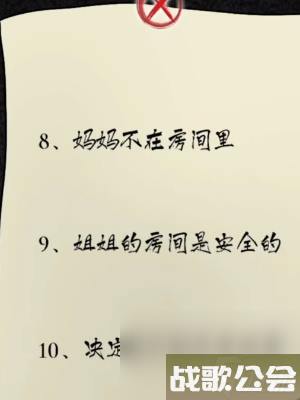 8、妈妈不在房间里
9、姐姐的房间是安全的
10、决定
战歌公会